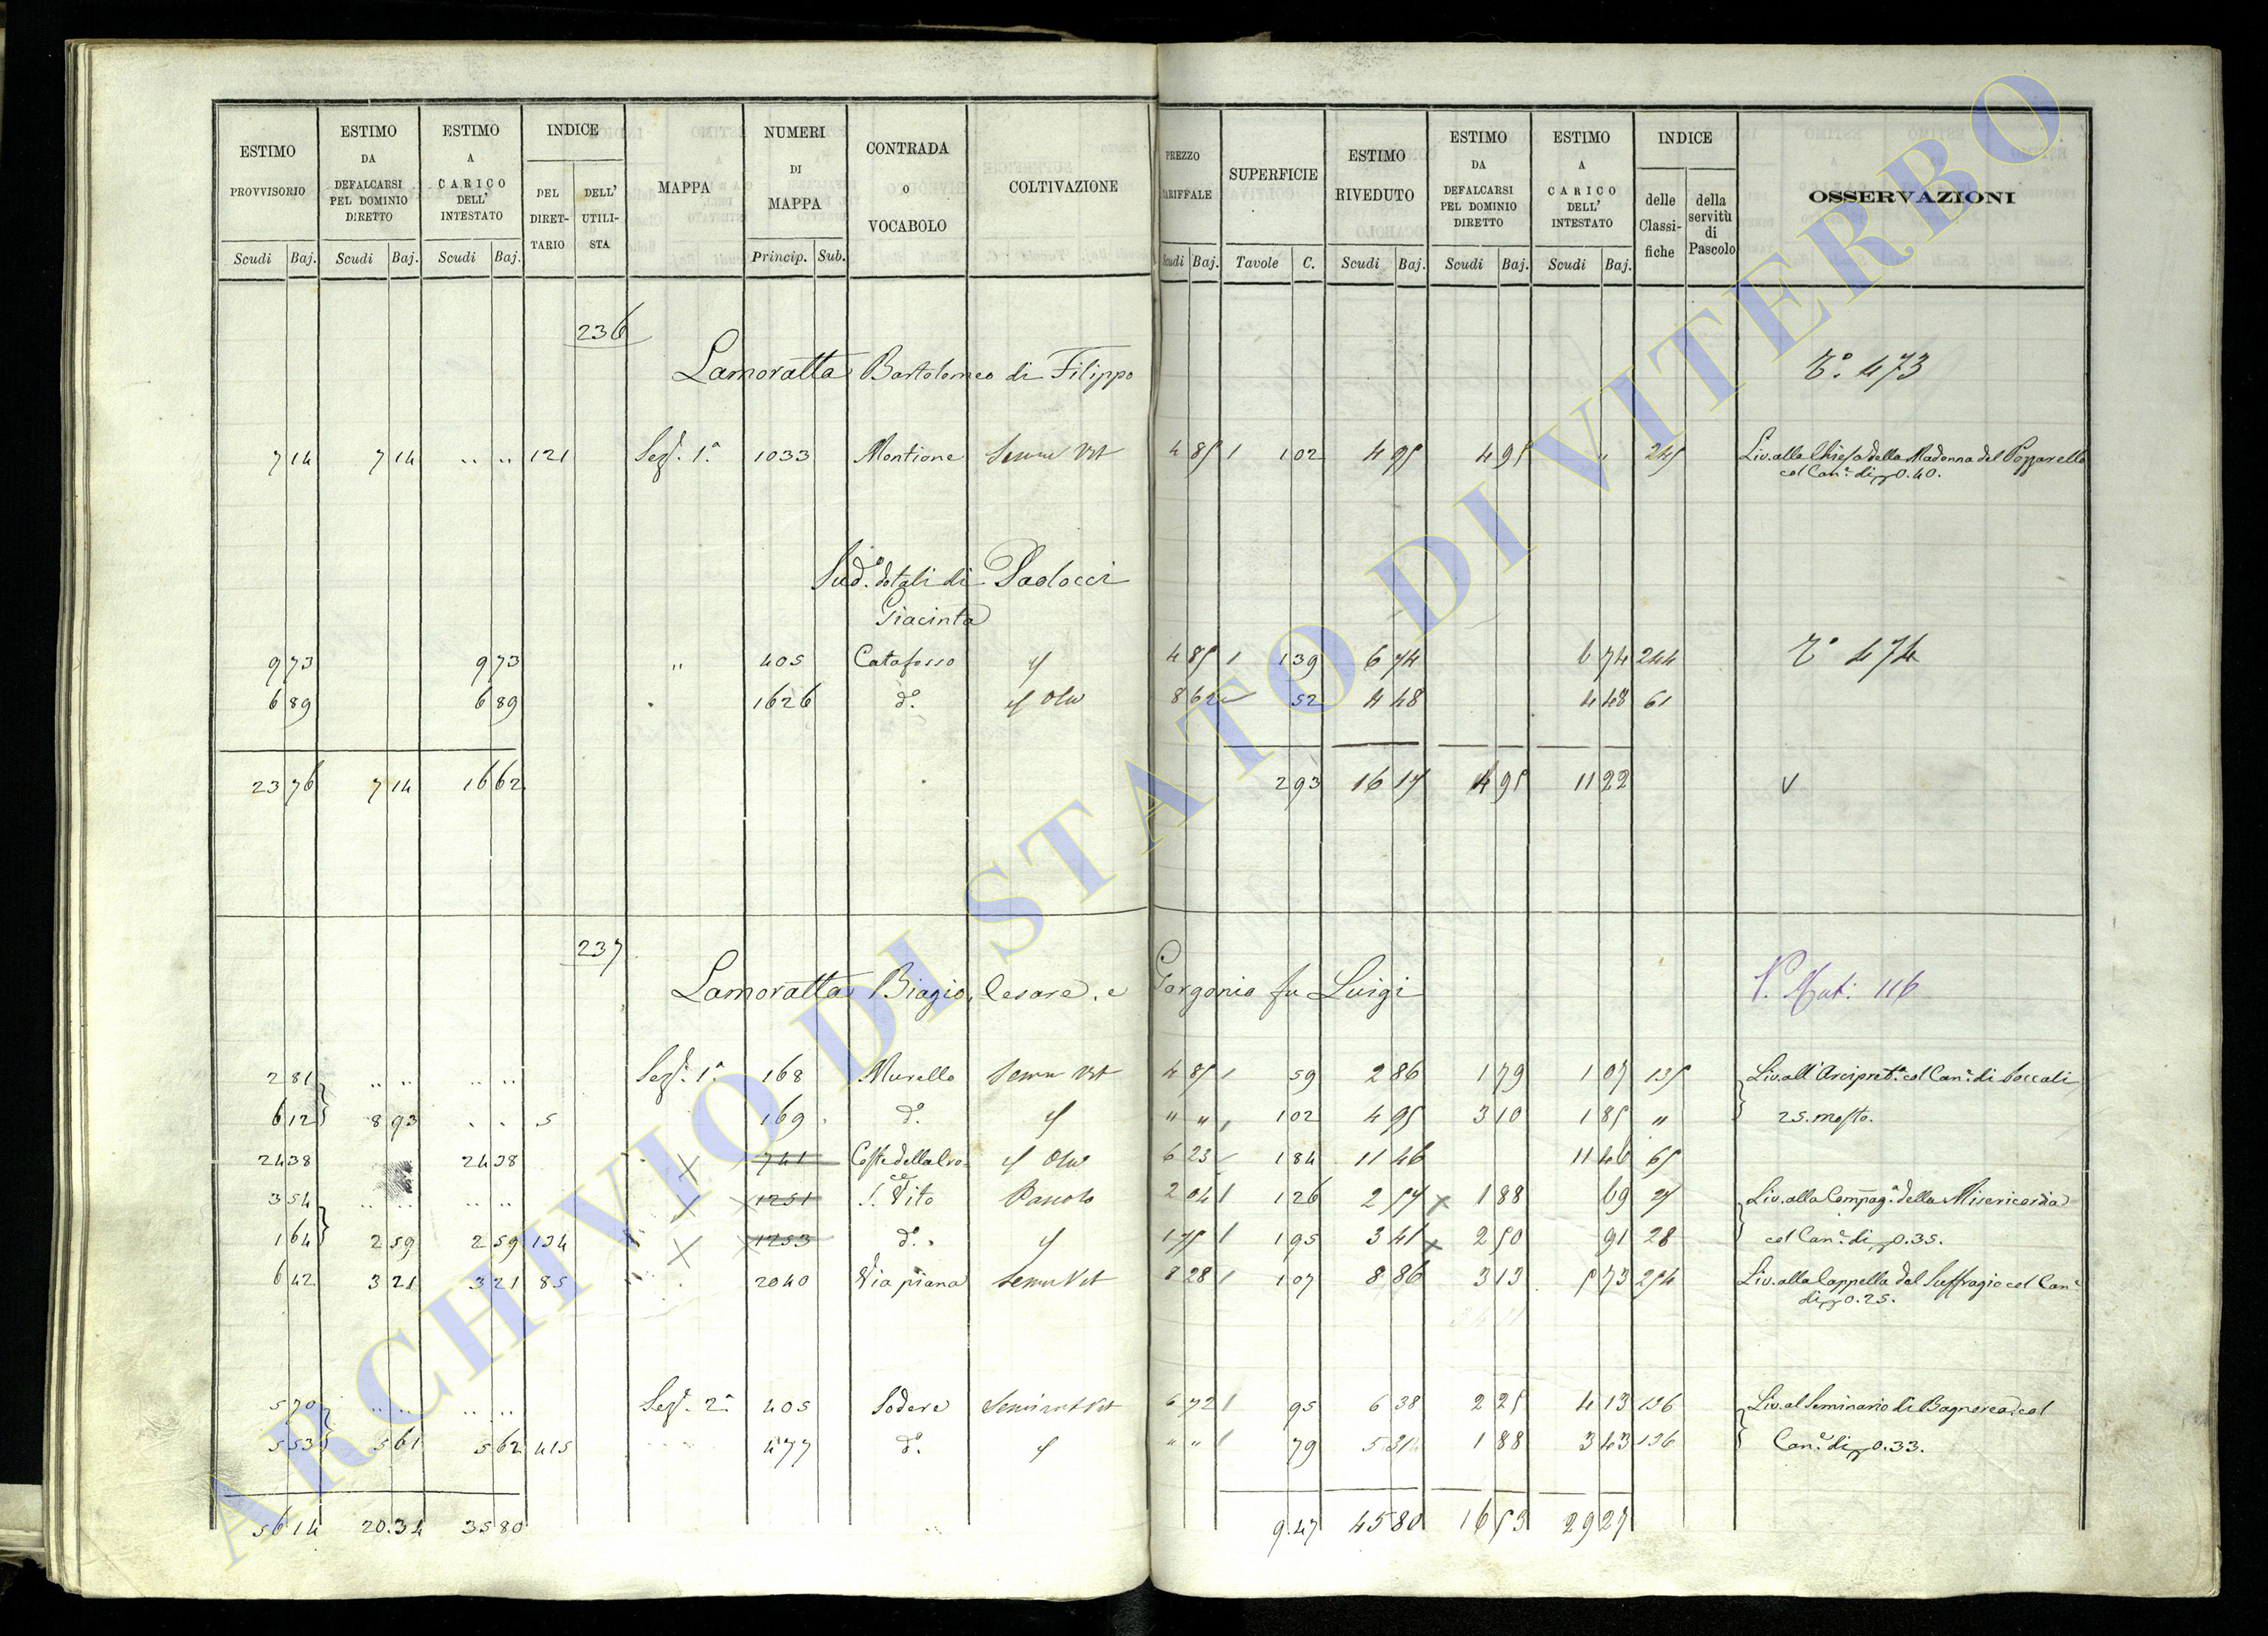 ESTIMO PROVVISORIO Scudi Baj. | ESTIMO DA DEFALCARSI PEL DOMINIO DIRETTO Scudi Baj. | ESTIMO A CARICO DELL' INTESTATO Scudi Baj. | INDICE DEL DIRETTARIO | DELL' UTILISTA | MAPPA | NUMERI DI MAPPA Princip. Sub. | CONTRADA O VOCABOLO | COLTIVAZIONE | PREZZO TARIFFALE Scudi Baj. | SUPERFICIE Tavole C. | ESTIMO RIVEDUTO Scudi Baj. | ESTIMO DA DEFALCARSI PEL DOMINIO DIRETTO Scudi Baj. | ESTIMO A CARICO DELL' INTESTATO Scudi Baj. | INDICE delle Classifiche | della servitù di Pascolo | OSSERVAZIONI
236
Lamoratta Bartolomeo di Filippo To. 473
7 14 7 14 .. .. 121 Sez. 1a 1033 Montione Semvo Vit 4 85 1 02 4 95 4 95 " 245 Liv. alla Chiesa della Madonna del Pozzarello
col Cane di 0.40.
Sudo dotali di Paolocci
Giacinta
9 73 9 73 " 405 Catafosso " 4 85 1 39 6 74 6 74 244 To 474
6 89 6 89 1626 do " Olvo 8 62 52 4 48 4 48 61
23 76 7 14 16 62 2 93 16 17 4 95 11 22 V
237
Lamoratta Biagio, Cesare, e Gorgonio fu Luigi V. Mut: 116
2 81 .. .. .. .. Sez. 1a 168 Murello Semvo Vit 4 85 59 2 86 1 79 1 07 135 Liv. all'Arcipreta col Cane di boccali
6 12 8 93 . . 5 169 do " " " 1 02 4 95 3 10 1 85 " 25. mosto.
24 38 24 38 741 Coste della Croce " Olvo 6 23 1 84 11 46 11 46 65
3 54 .. .. .. .. 1251 S. Vito Pascolo 2 04 1 26 2 57 1 88 69 27 Liv. alla Compaga della Misericordia
1 64 2 59 2 59 134 1253 do " 1 75 1 95 3 41 2 50 91 28 col Cane di 0.35.
6 42 3 21 3 21 85 2040 Via piana Semvo Vit 8 28 1 07 8 86 3 13 5 73 254 Liv. alla Cappella del Suffragio col Cane
di 0.25.
5 70 .. .. .. .. Sez. 2a 405 Sodere Semivo Vit 6 72 95 6 38 2 25 4 13 136 Liv. al Seminario di Bagnorea col
5 53 5 61 5 62 415 477 do " " " 79 5 31 1 88 3 43 136 Cane di 0.33.
56 14 20.34 35 80 9.47 45 80 16 53 29 27
ARCHIVIO DI STATO DI VITERBO